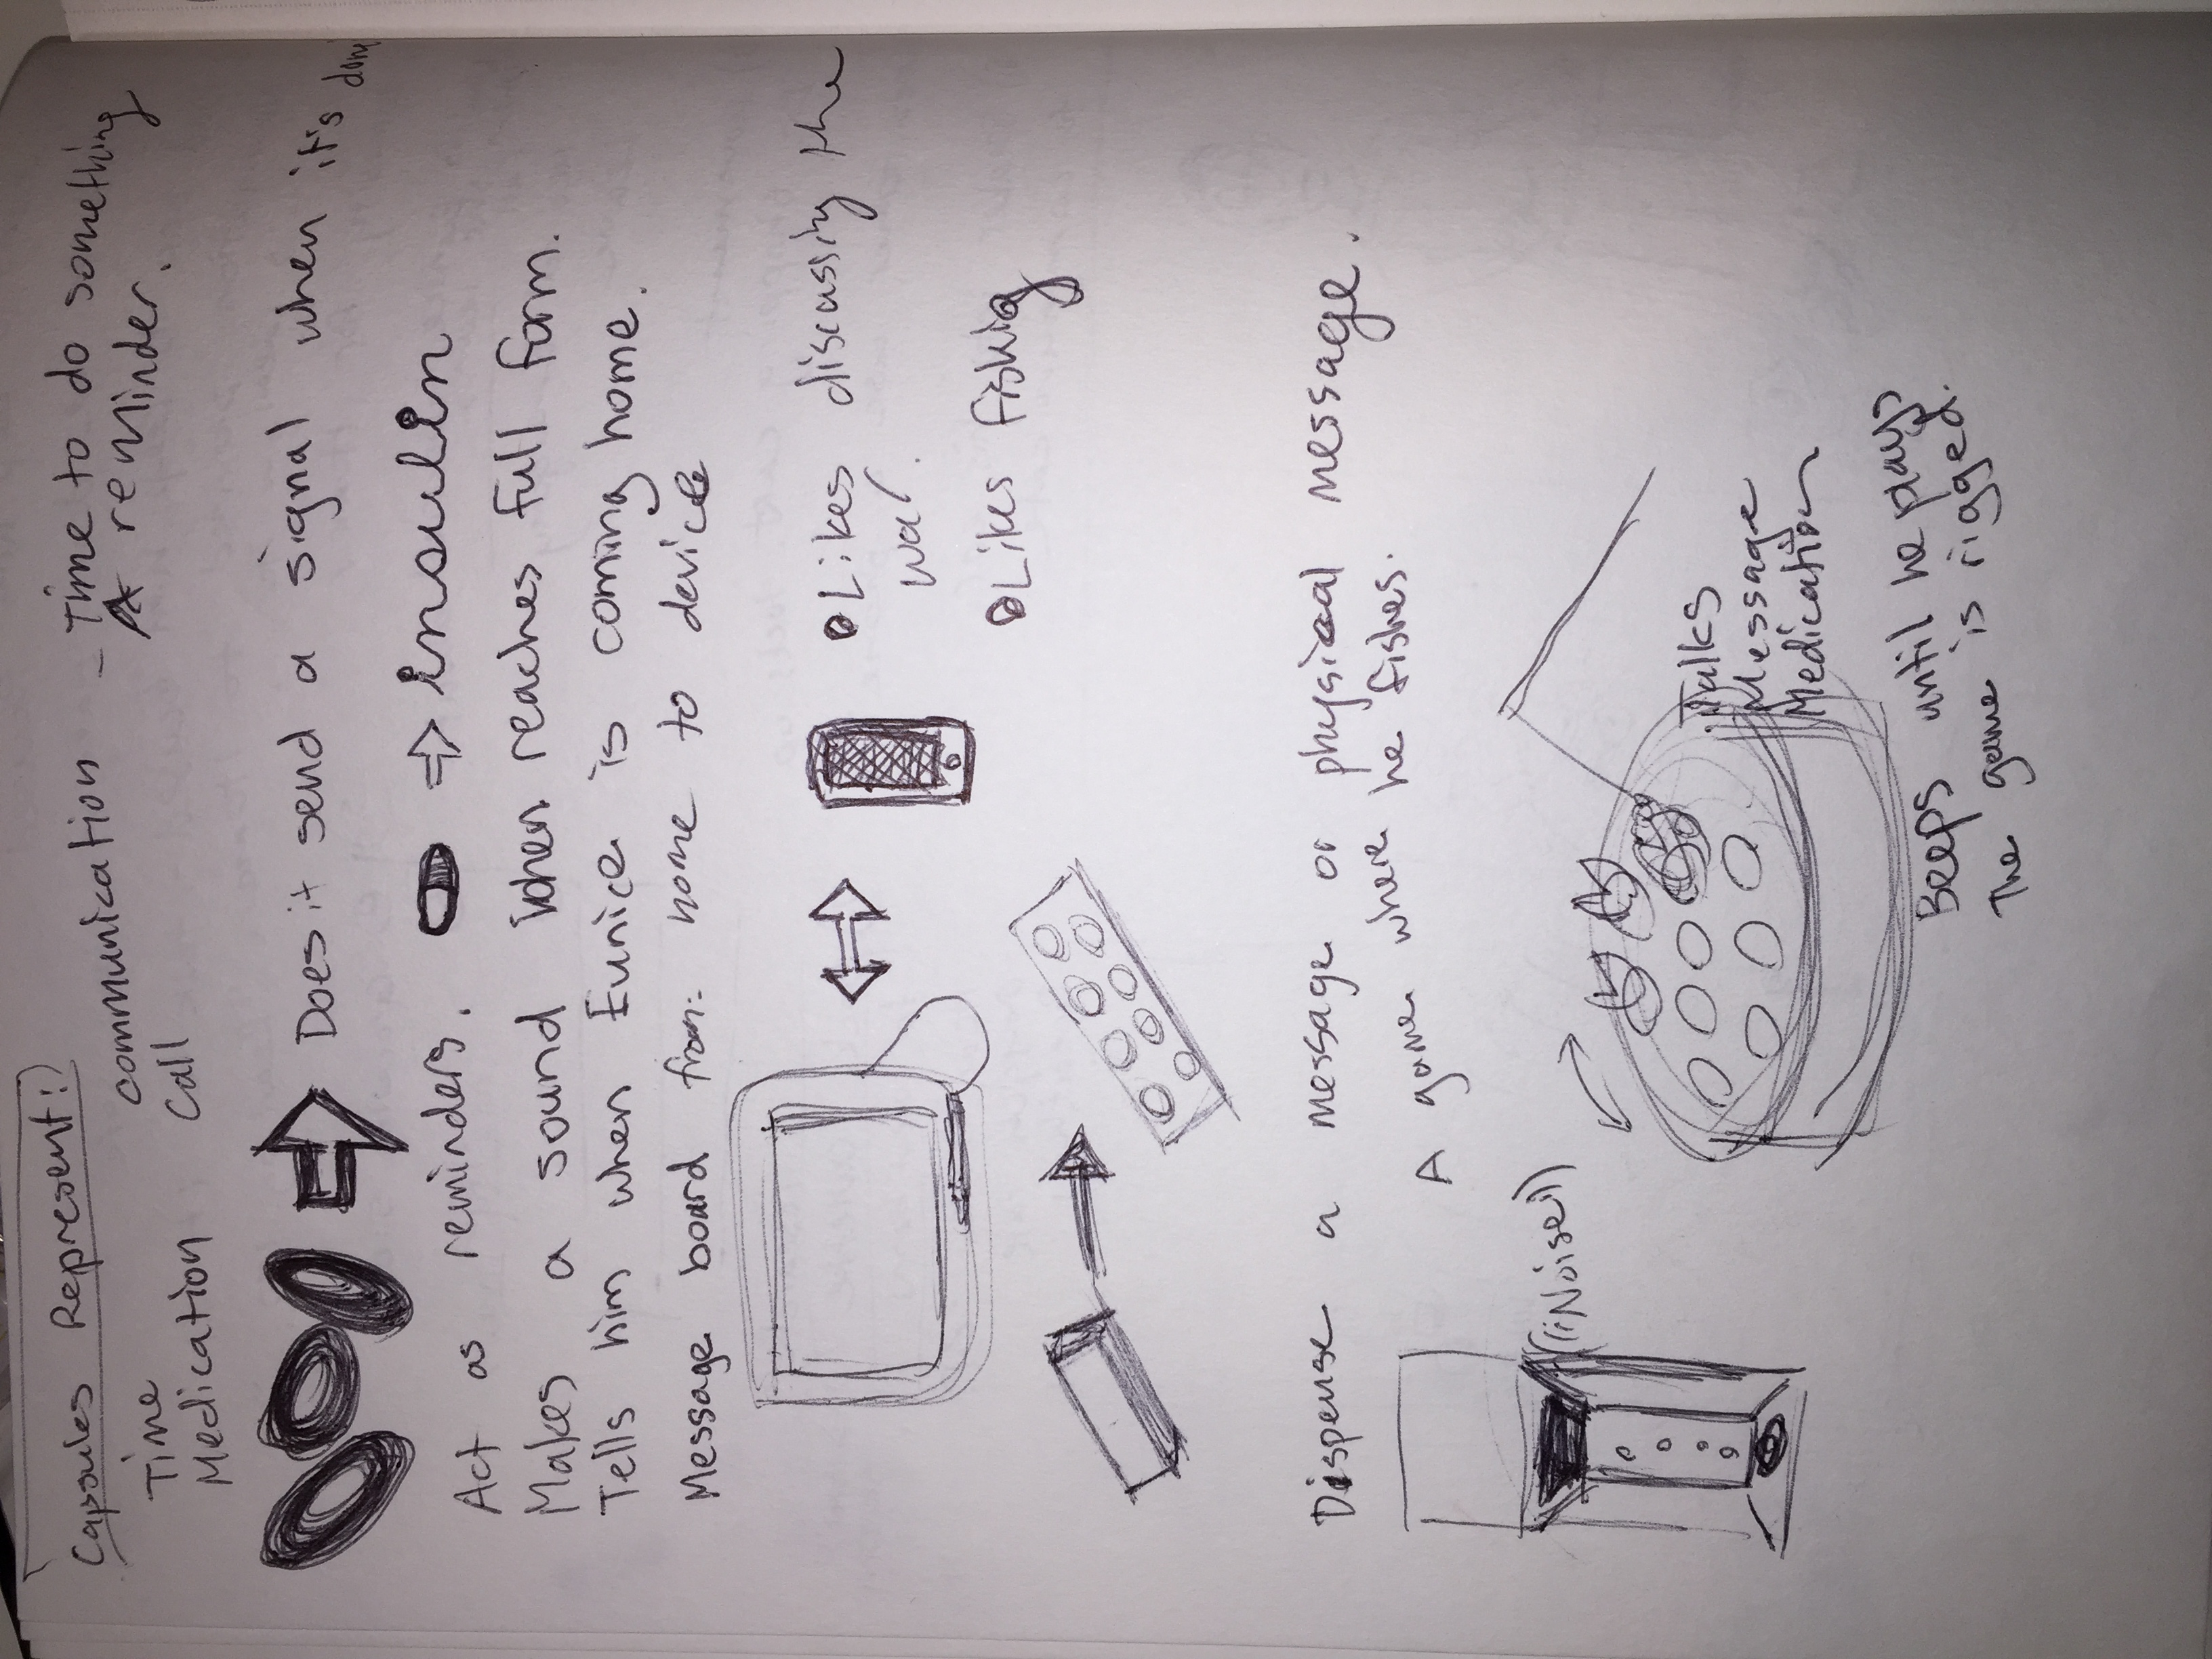 Capsules Represent:
Time
Medication
communication
Call
- Time to do something
A reminder.
Does it send a signal when it's done
Act as reminders.
insulin
Makes a sound when reaches full form.
Tells him when Eunice is coming home.
Message board from: home to device
Likes discussing the
war.
Likes fishig
Dispense a message or physical message.
A game where he fishes.
((Noise))
Talks
Message
Medication
Beeps until he plays
The game is rigged.